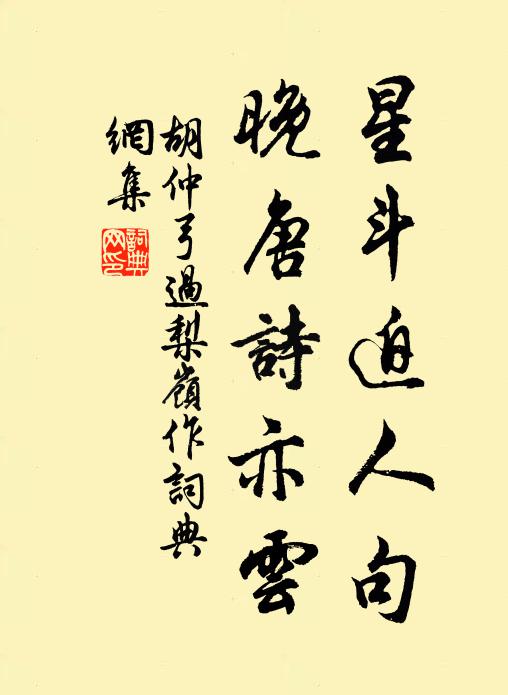 星斗迫人句
晚唐詩亦雲
胡仲弓過梨嶺作詞典
網集
詞典
网印